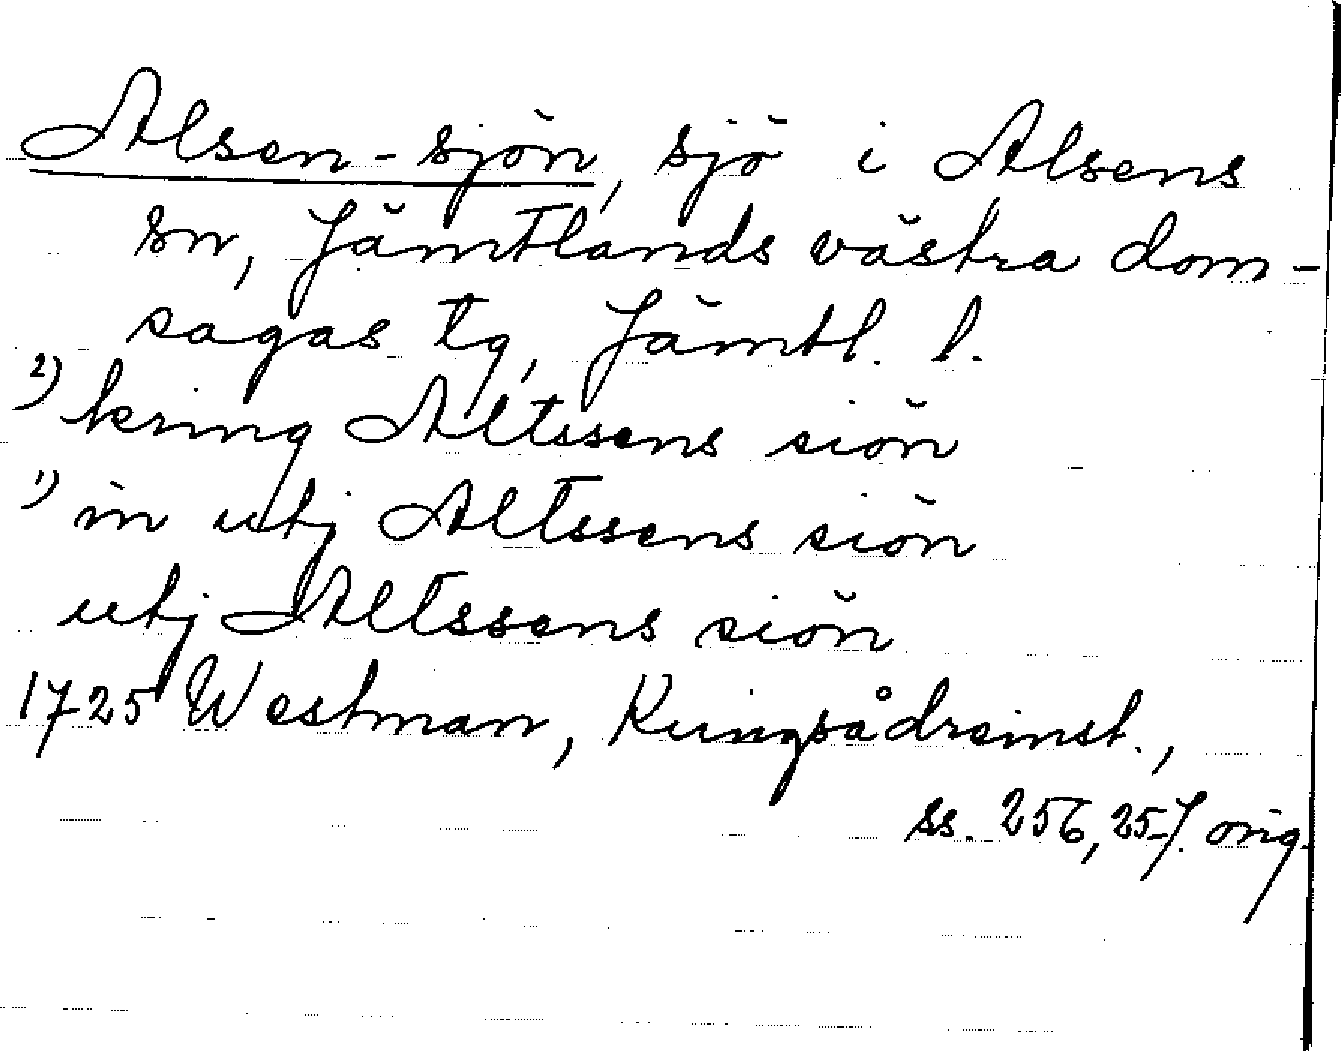 Alsen-sjön, sjö i Alsens
sn, Jämtlands västra dom-
sagas tg, Jämtl. l.
2) kring Altssens siön
1) in utj Altssens siön
utj Altssens siön
1725 Westman, Kungsådreinst.,
ss. 256, 257. orig.